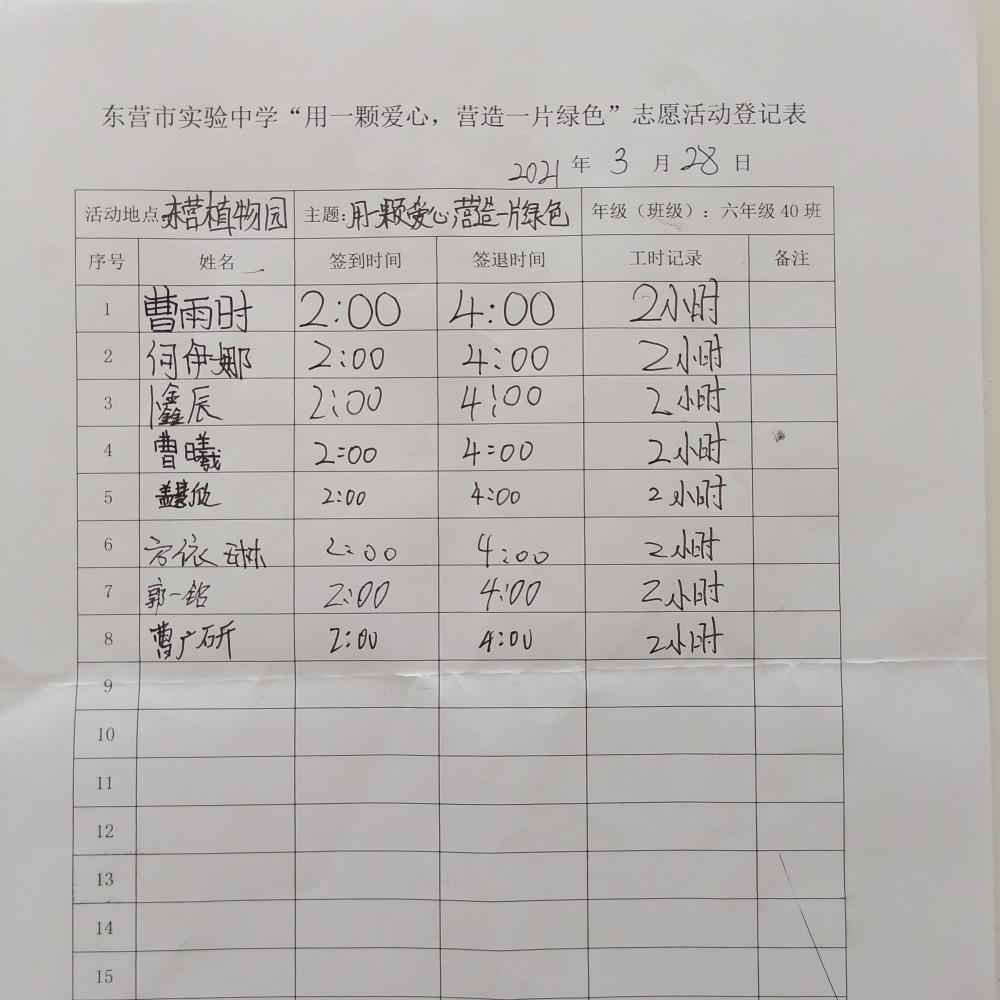 东营市实验中学“用一颗爱心，营造一片绿色”志愿活动登记表
2021 年 3 月 28 日
活动地点 东营植物园 主题：用一颗爱心，营造一片绿色 年级（班级）：六年级 40 班
序号 姓名 签到时间 签退时间 工时记录 备注
1 曹雨时 2:00 4:00 2小时
2 何伊娜 2:00 4:00 2小时
3 鑫辰 2:00 4:00 2小时
4 曹曦 2:00 4:00 2小时
5 2:00 4:00 2小时
6 方依琳 2:00 4:00 2小时
7 郭一铭 2:00 4:00 2小时
8 曹广研 2:00 4:00 2小时
9
10
11
12
13
14
15